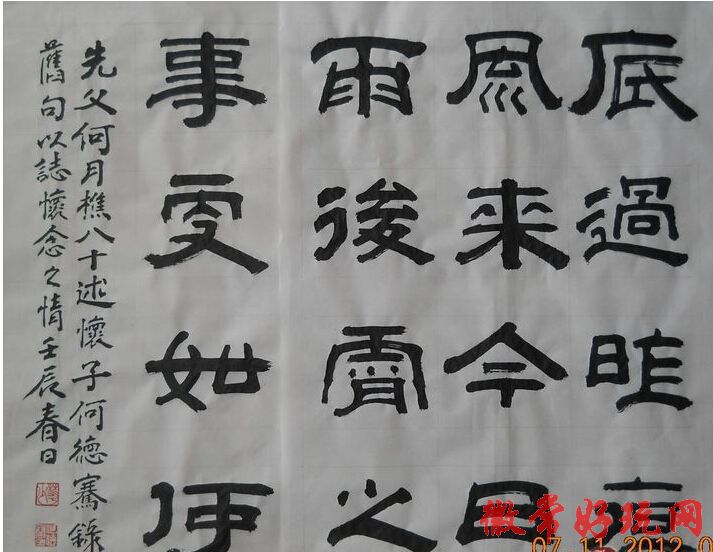 底過昨
風来今日
雨後霄之
事更如何
先父何月樵八十述懷子何德騫錄
舊句以誌懷念之情壬辰春日
徽常好玩网
07 11 2012 0